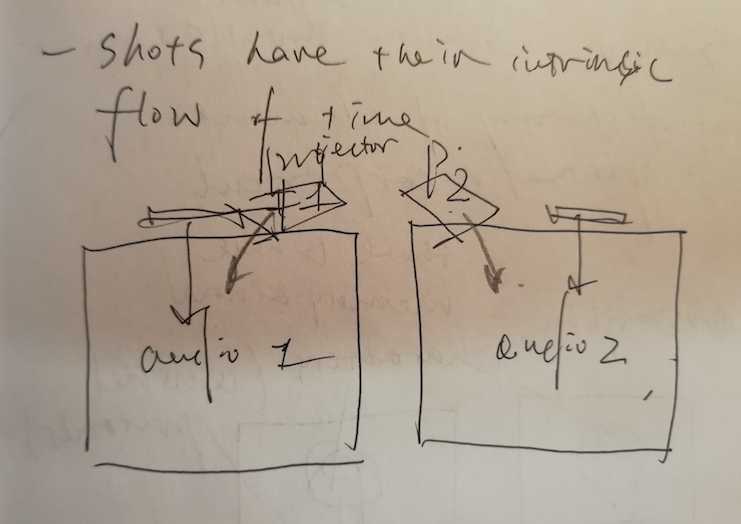 - shots have their intrinsic
flow of time
projector
1
P. 2
audio 1
audio 2